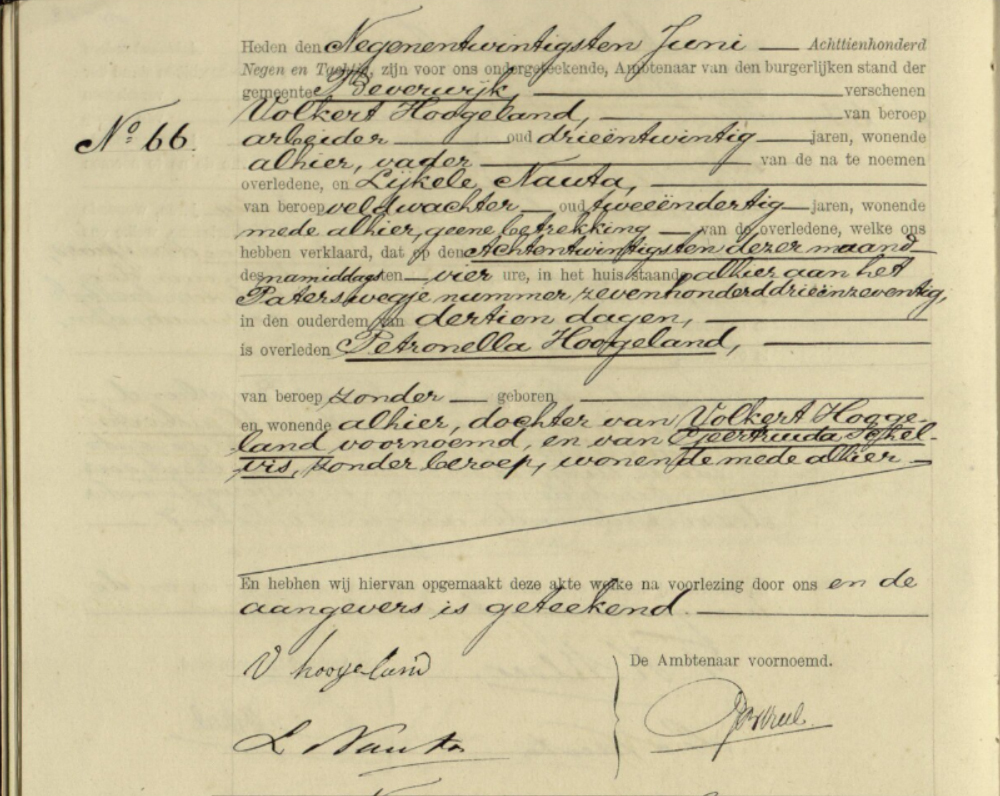 Heden den Negenentwintigsten Juni — Achttienhonderd
Negen en Tachtig, zijn voor ons ondergeteekende, Ambtenaar van den burgerlijken stand der
gemeente Beverwijk, verschenen
Volkert Hoogeland, van beroep
No 66.
arbeider oud drieëntwintig jaren, wonende
alhier, vader van de na te noemen
overledene, en Lijkele Nauta,
van beroep veldwachter oud tweeëndertig jaren, wonende
mede alhier, geene betrekking van de overledene, welke ons
hebben verklaard, dat op den Achtentwintigsten dezer maand
des namiddags ten vier ure, in het huis staande alhier aan het
Paterswegje nummer zevenhonderddrieënzeventig,
in den ouderdom van dertien dagen,
is overleden Petronella Hoogeland,
van beroep zonder geboren
en wonende alhier, dochter van Volkert Hooge-
land voornoemd, en van Geertruida Schel-
vis, zonder beroep, wonende mede alhier
En hebben wij hiervan opgemaakt deze akte welke na voorlezing door ons en de
aangevers is geteekend.
V hoogeland
De Ambtenaar voornoemd.
L Nauta